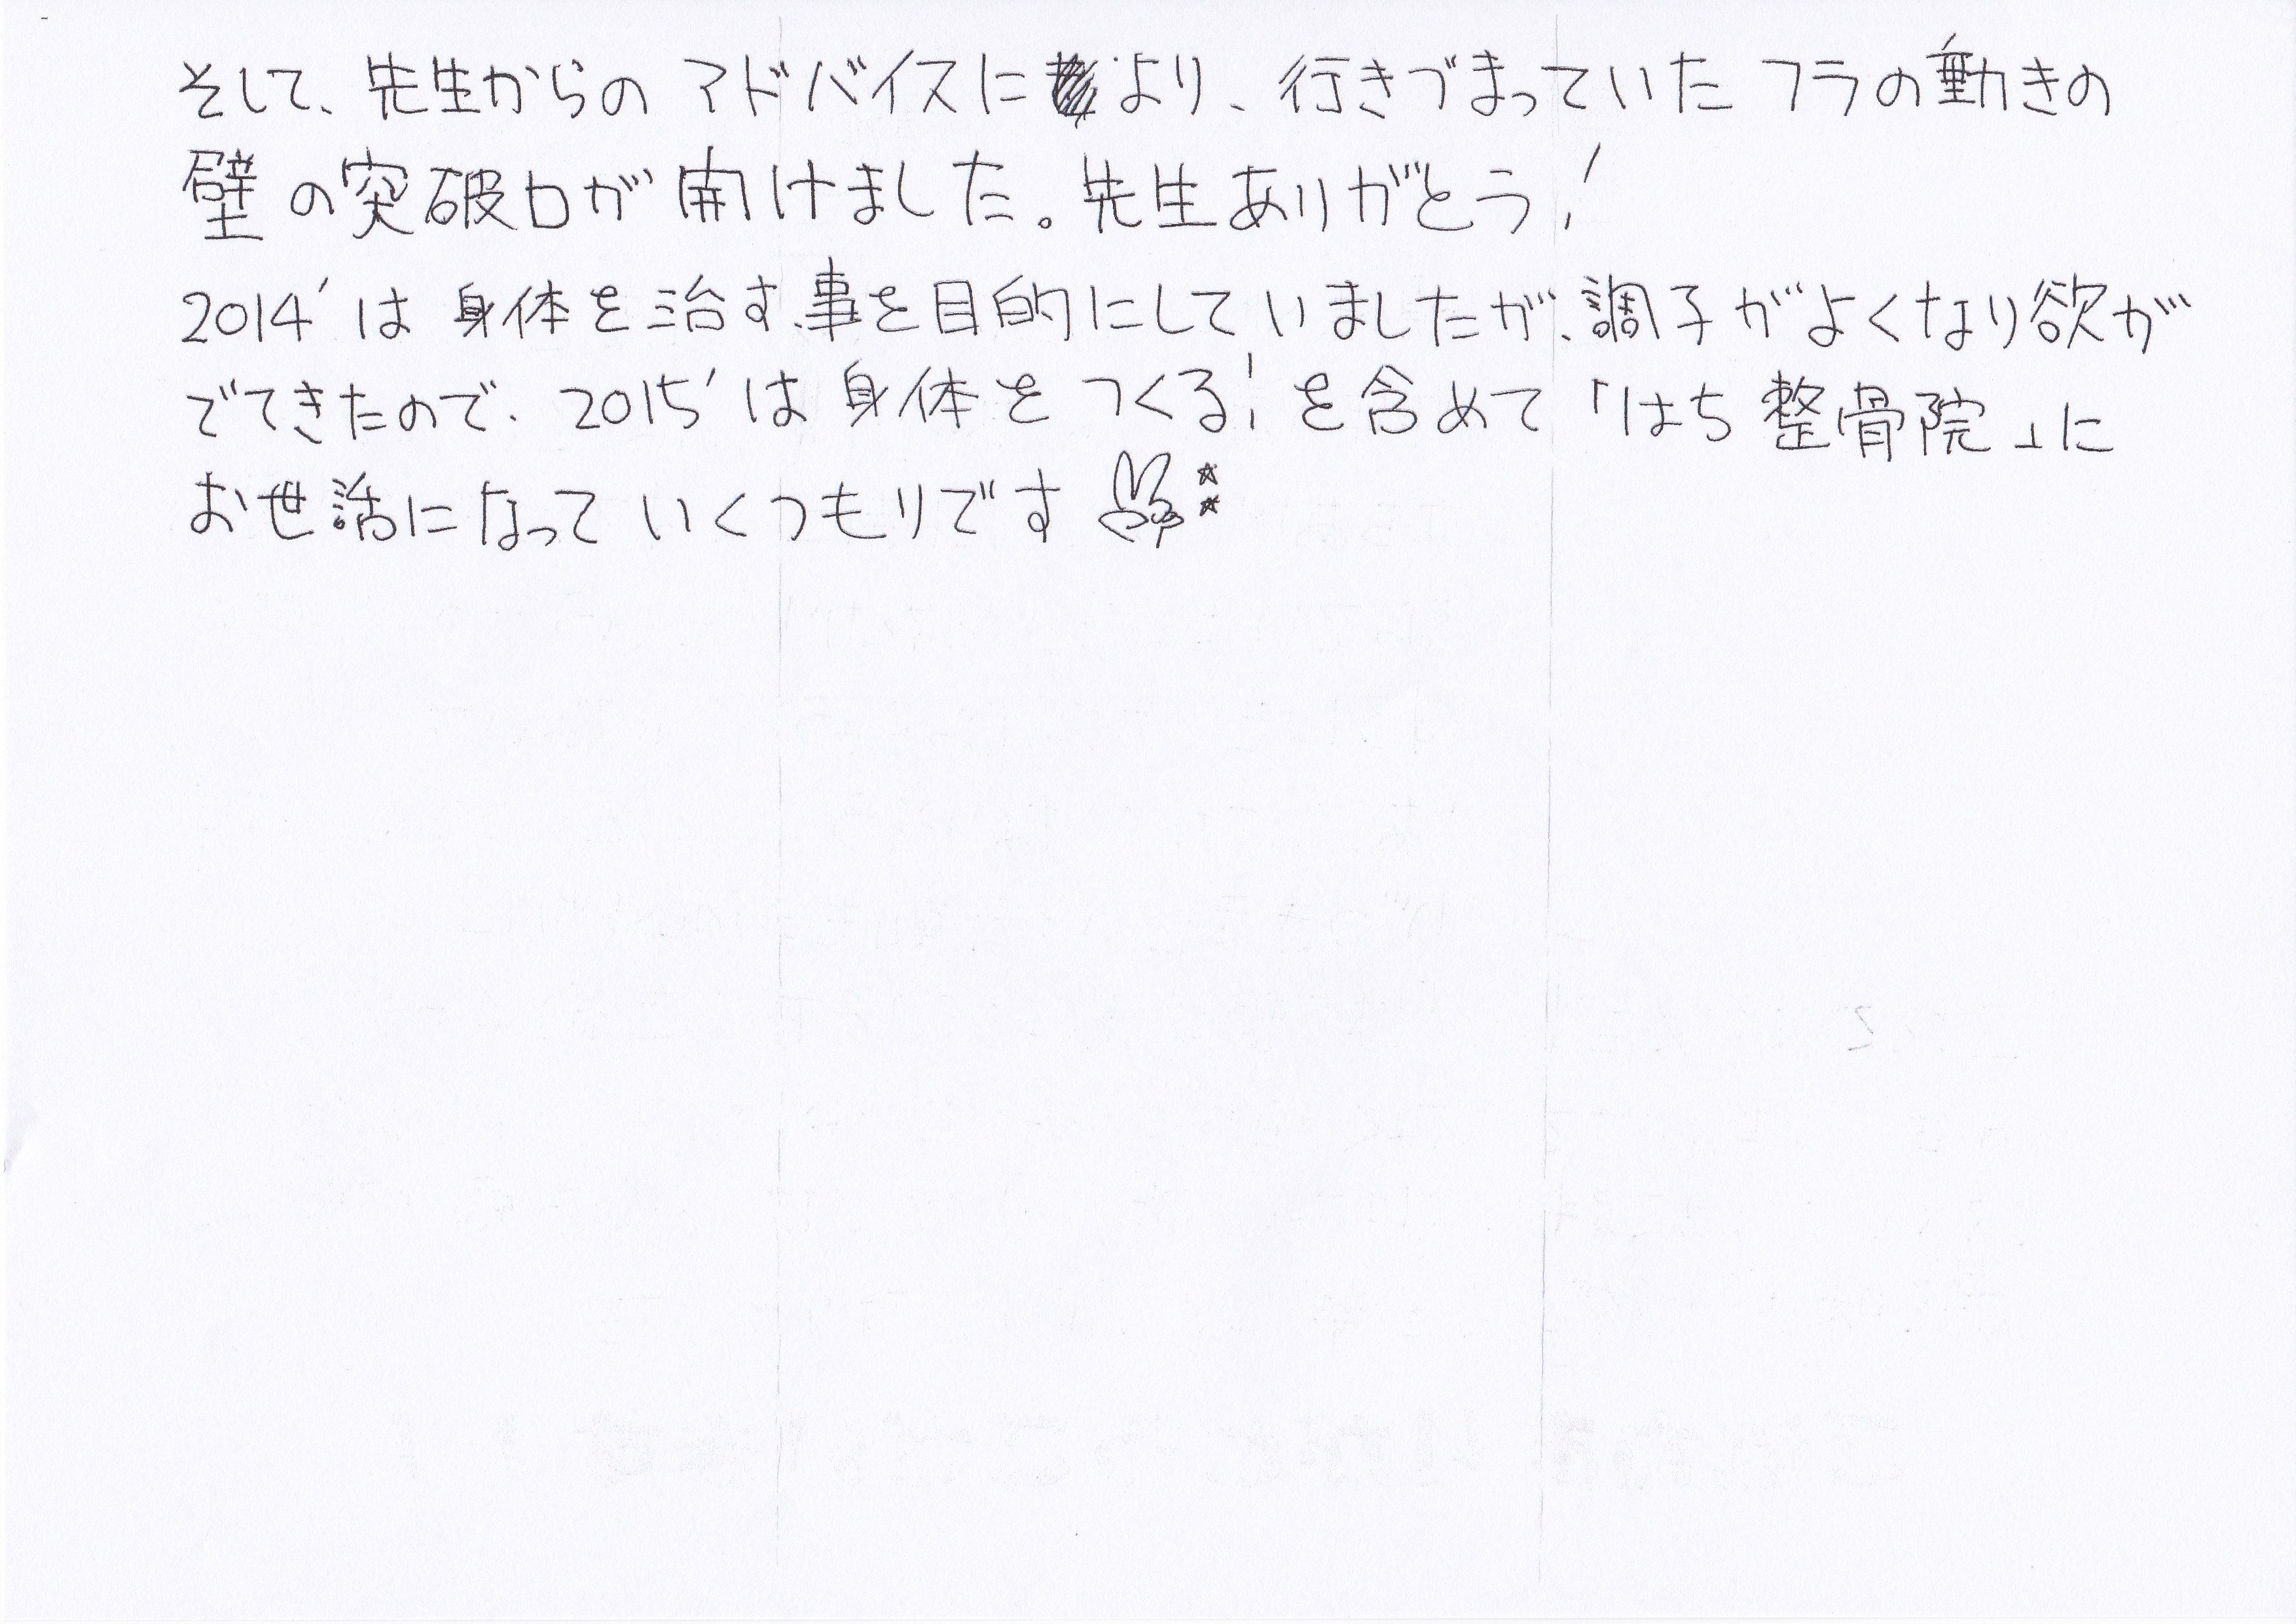 そして、先生からのアドバイスにより、行きづまっていたフラの動きの
壁の突破口が開けました。先生ありがとう!
2014'は身体を治す事を目的にしていましたが、調子がよくなり欲が
でてきたので、2015'は身体をつくる!を含めて「はち整骨院」に
お世話になっていくつもりです